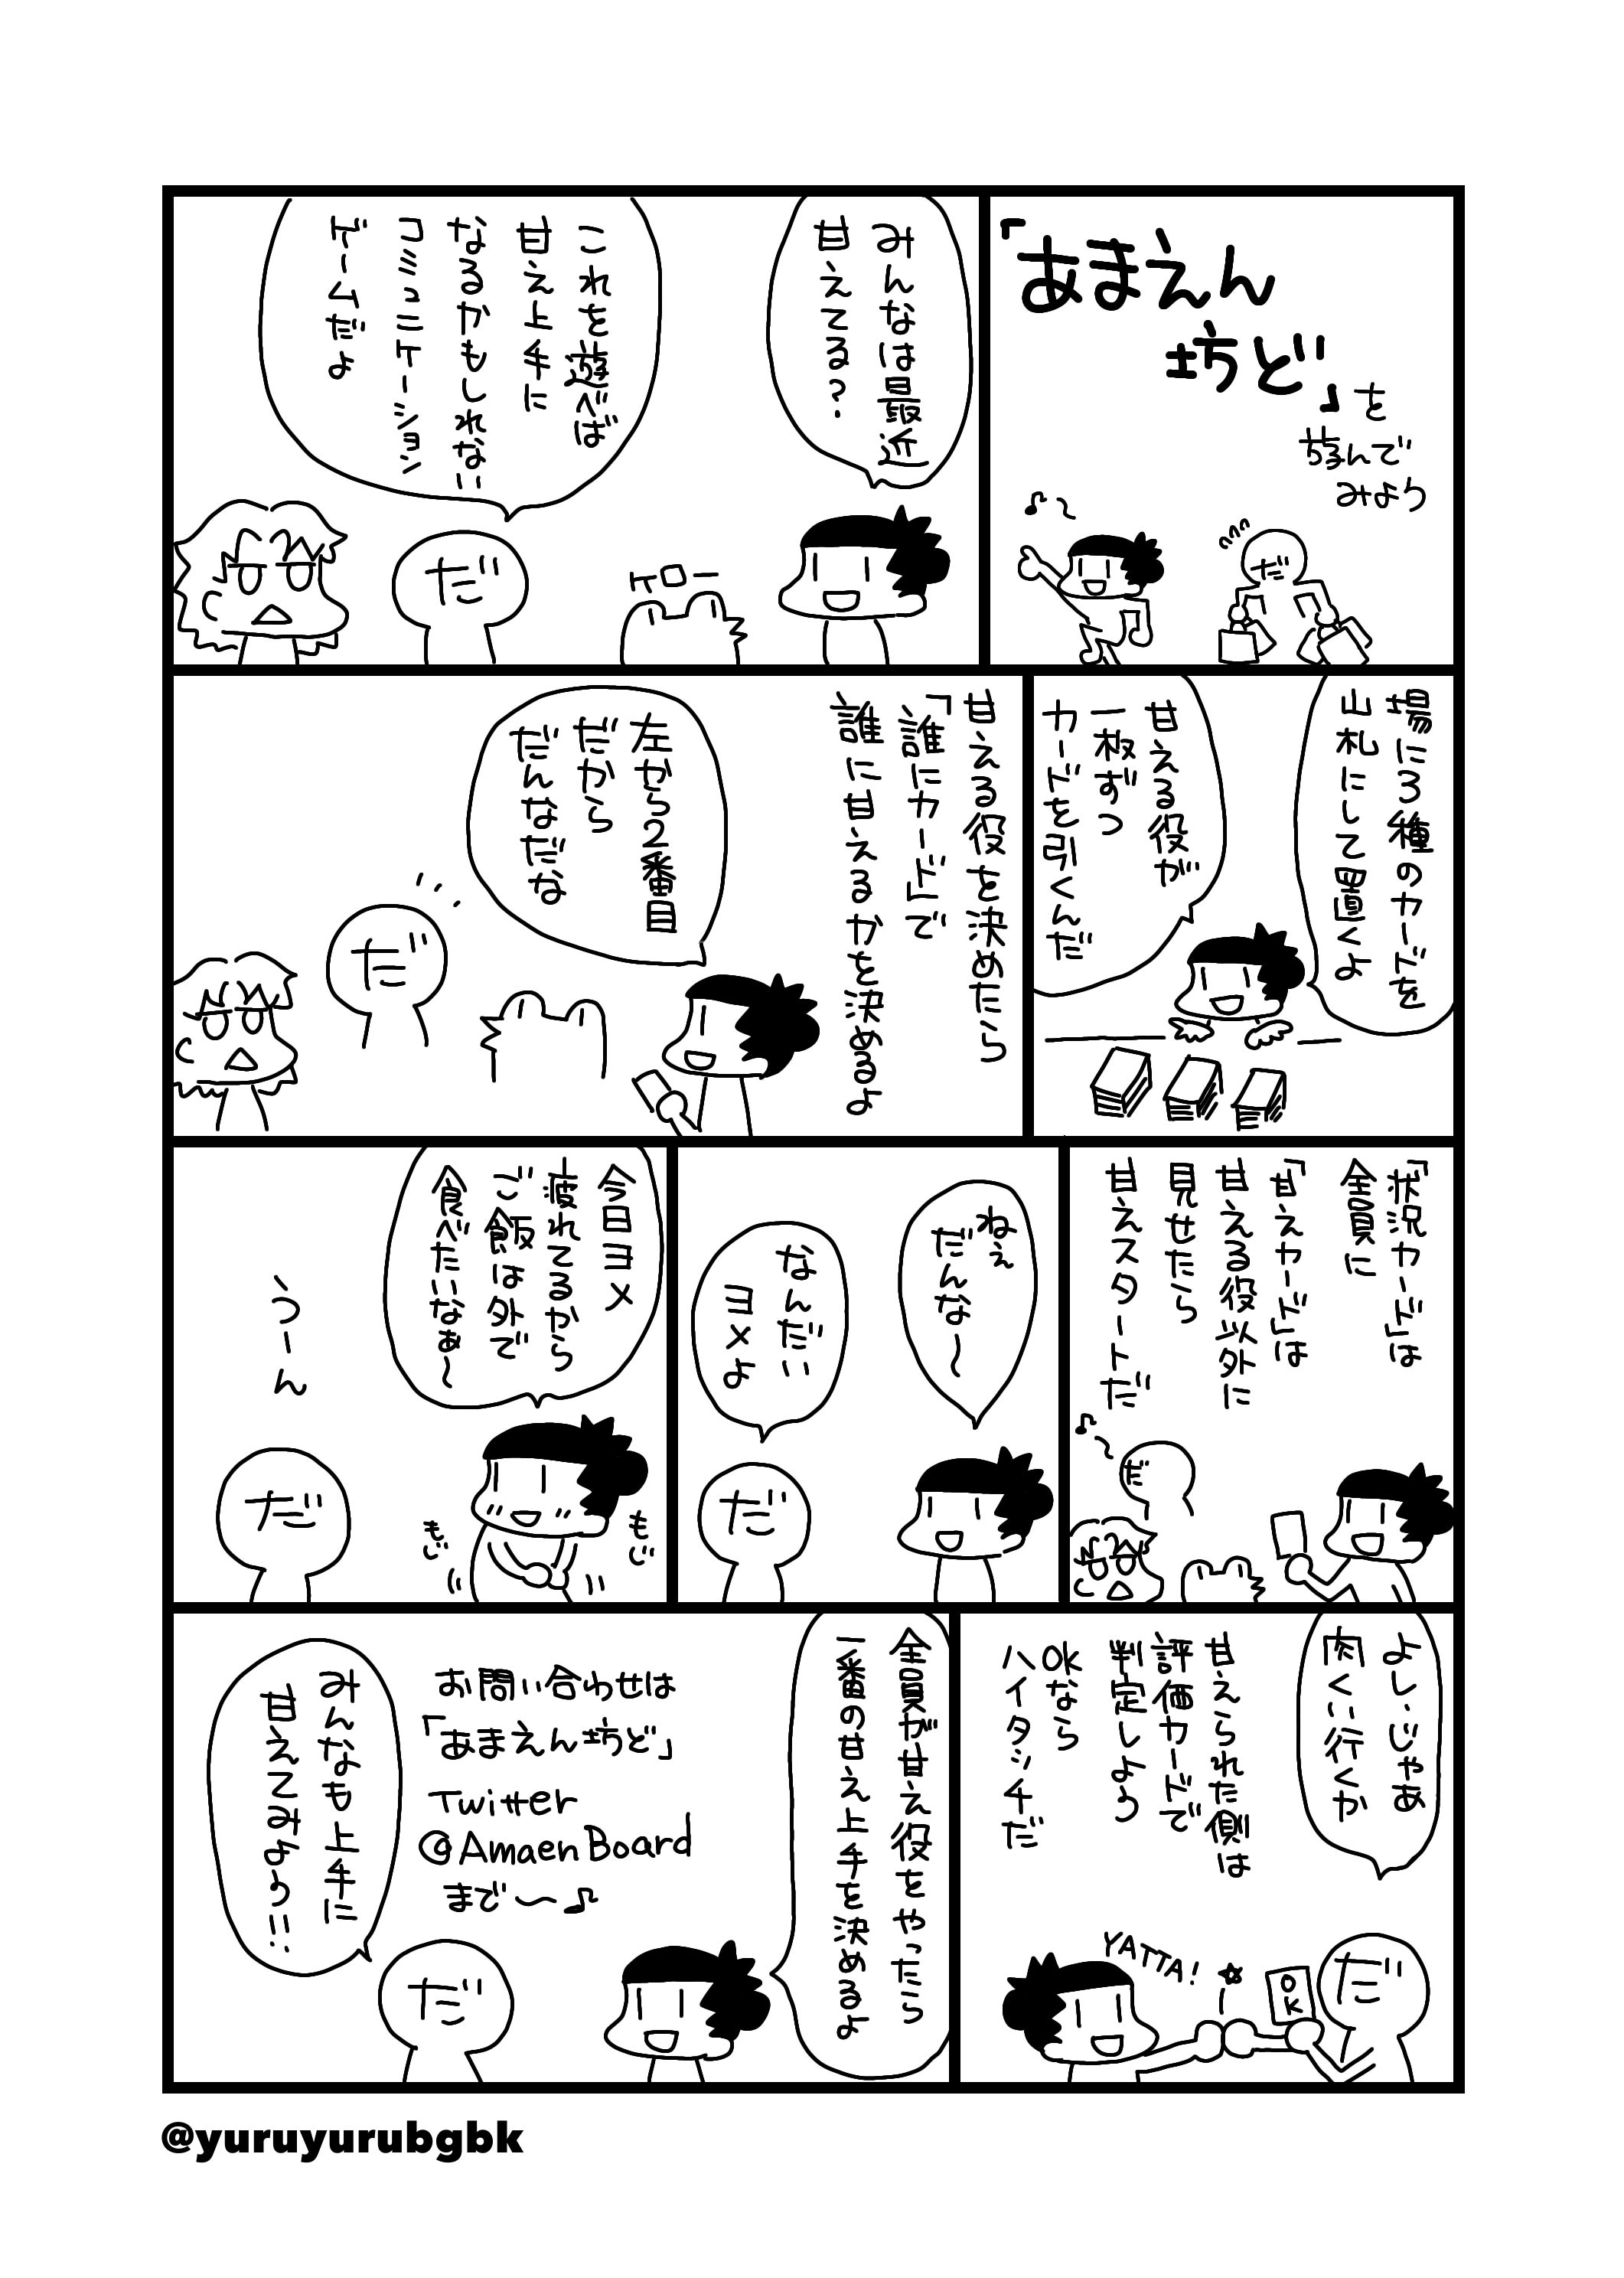 「あまえん
坊ど」を
遊んで
みよう
だ
みんなは最近
甘えてる?
これを遊べば
甘え上手に
なるかもしれない
コミュニケーション
ゲームだよ
ケロー
だ
場に3種のカードを
山札にして置くよ
甘える役が
一枚ずつ
カードを引くんだ
甘える役を決めたら
「誰にカード」で
誰に甘えるかを決めるよ
左から2番目
だから
だんなだな
だ
「状況カード」は
全員に
「甘えカード」は
甘える役以外に
見せたら
甘えスタートだ
だ
ねぇ
だんな〜
なんだい
ヨメよ
だ
今日ヨメ
疲れてるから
ご飯は外で
食べたいなぁ〜
もじ
もじ
うーん
だ
よしじゃあ
肉くい行くか
甘えられた側は
評価カードで
判定しよう
OKなら
ハイタッチだ
YATTA!
OK
だ
全員が甘え役をやったら
一番の甘え上手を決めるよ
お問い合わせは
「あまえん坊ど」
Twitter
@AmaenBoard
まで〜♪
みんなも上手に
甘えてみよう!!
だ
@yuruyurubgbk